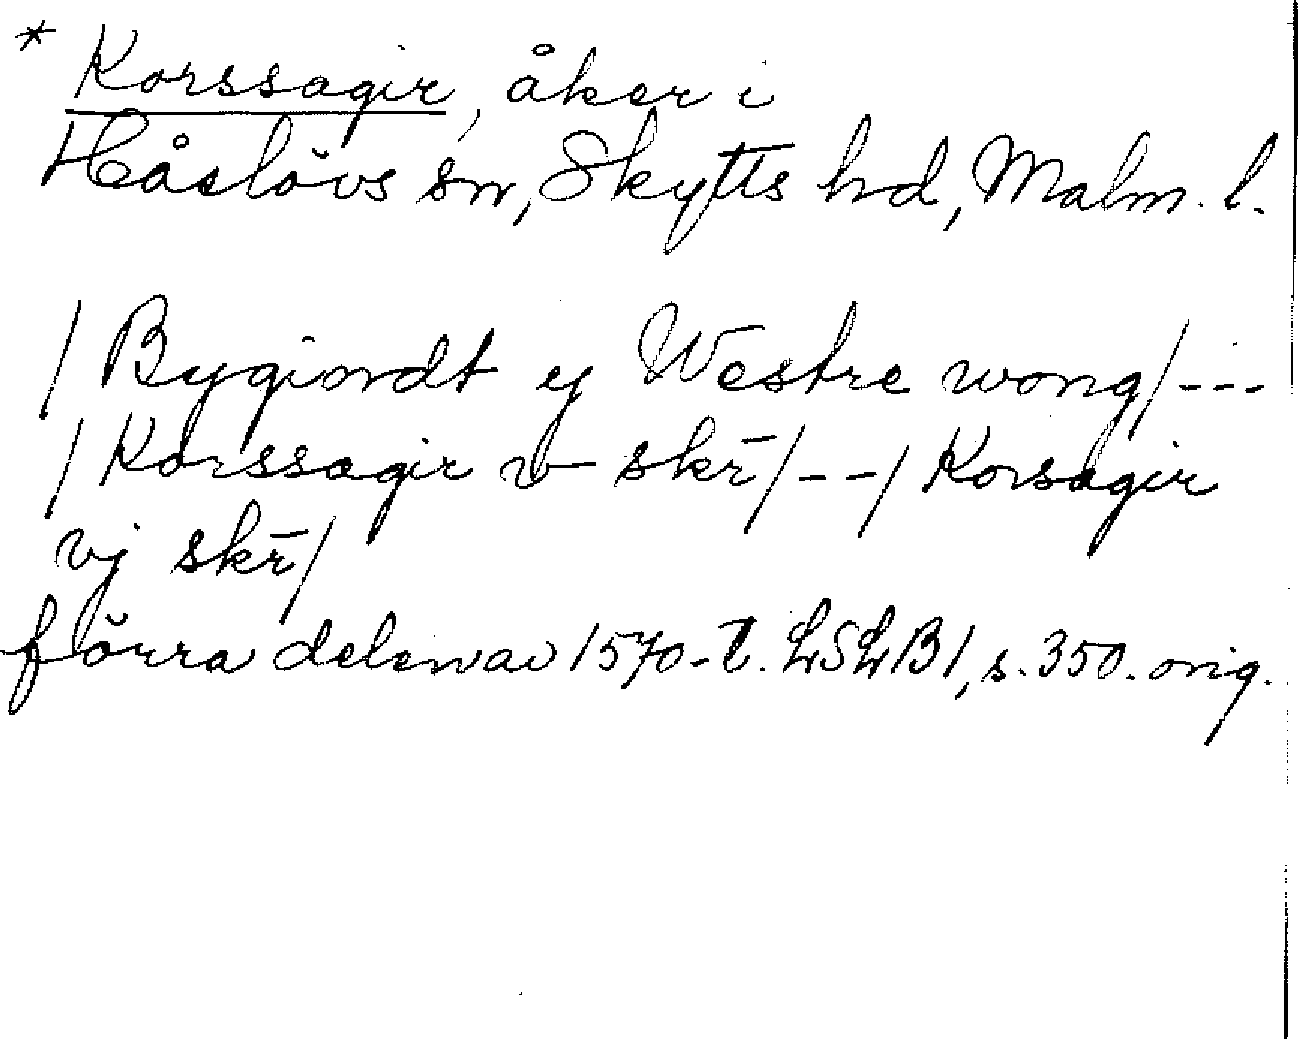 * Korssagir, åker i
Håslövs sn, Skytts hd, Malm. l.
/Bygiordt ej Westre wong/---
/Korssagir v skr̄/--/Korsagir
vj skr̄/
förra delen av 1570-t. LSLB1, s. 350. orig.